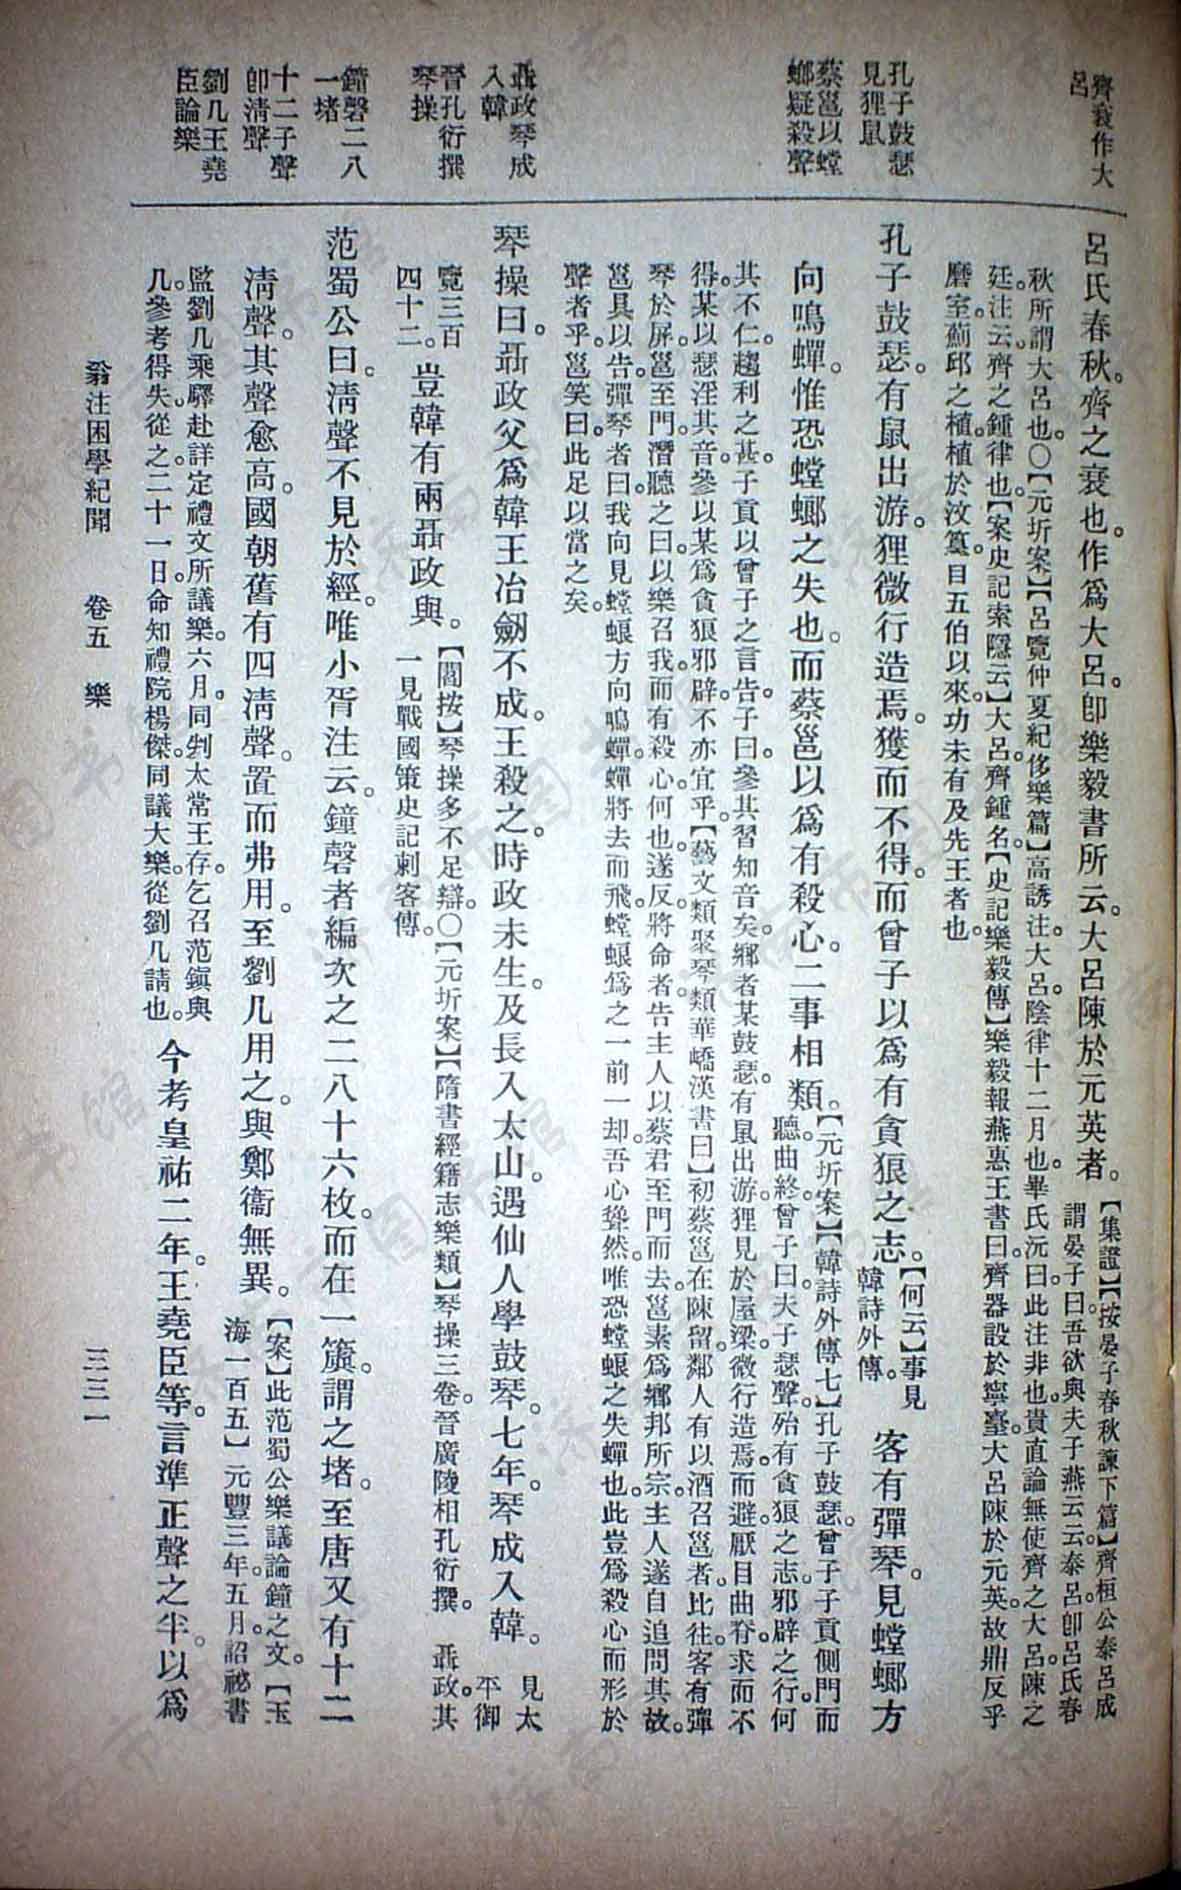 齊衰作大
呂
孔子鼓瑟
見狸鼠
蔡邕以螳
螂疑殺聲
聶政琴成
入韓
晉孔衍撰
琴操
鐘磬二八
一堵
十二子聲
卽清聲
劉几王堯
臣論樂
呂氏春秋。齊之衰也。作爲大呂。卽樂毅書所云。大呂陳於元英者。
【集證】【按晏子春秋諫下篇】齊桓公泰呂成
謂晏子曰。吾欲與夫子燕云云。泰呂。卽呂氏春
秋所謂大呂也。〇【元圻案】【呂覽仲夏紀侈樂篇】高誘注。大呂。陰律十二月也。畢氏沅曰。此注非也。貴直論無使齊之大呂。陳之
廷。注云。齊之鍾律也。【案史記索隱云】大呂。齊鍾名。【史記樂毅傳】樂毅報燕惠王書曰。齊器設於寧臺。大呂陳於元英。故鼎反乎
磨室。薊邱之植。植於汶篁。自五伯以來。功未有及先王者也。
孔子鼓瑟。有鼠出游。狸微行造焉。獲而不得。而曾子以爲有貪狠之志。
【何云】事見
韓詩外傳。
客有彈琴。見螳螂方
向鳴蟬。惟恐螳螂之失也。而蔡邕以爲有殺心。二事相類。
【元圻案】【韓詩外傳七】孔子鼓瑟。曾子子貢側門而
聽。曲終。曾子曰。夫子瑟聲。殆有貪狠之志。邪辟之行。何
其不仁。趨利之甚。子貢以曾子之言告。子曰。參其習知音矣。鄉者某鼓瑟。有鼠出游。狸見於屋梁。微行造焉。而避。厭目曲脊。求而不
得。某以瑟淫其音。參以某爲貪狠邪辟。不亦宜乎。【藝文類聚琴類華嶠漢書曰】初蔡邕在陳留。鄰人有以酒召邕者。比往。客有彈
琴於屏。邕至門。潛聽之曰。以樂召我。而有殺心。何也。遂反。將命者告主人以蔡君至門而去。邕素爲鄉邦所宗。主人遂自追問其故。
邕具以告。彈琴者曰。我向見螳蜋方向鳴蟬。蟬將去而飛。螳蜋爲之一前一却。吾心聳然。唯恐螳蜋之失蟬也。此豈爲殺心而形於
聲者乎。邕笑曰。此足以當之矣。
琴操曰。聶政父爲韓王冶劒不成。王殺之。時政未生。及長入太山。遇仙人學鼓琴。七年。琴成入韓。
見太
平御
覽三百
四十二。
豈韓有兩聶政與。
【閻按】琴操多不足辯。〇【元圻案】【隋書經籍志樂類】琴操三卷。晉廣陵相孔衍撰。 聶政。其
一見戰國策史記刺客傳。
范蜀公曰。清聲不見於經。唯小胥注云。鐘磬者。編次之二八十六枚。而在一簴。謂之堵。至唐又有十二
清聲。其聲愈高。國朝舊有四清聲。置而弗用。至劉几用之。與鄭衞無異。
【案】此范蜀公樂議論鐘之文。【玉
海一百五】元豐三年。五月。詔祕書
監劉几乘驛赴詳定禮文所議樂。六月。同判太常王存。乞召范鎭與
几參考得失。從之。二十一日。命知禮院楊傑。同議大樂。從劉几請也。
今考皇祐二年。王堯臣等言。準正聲之半。以爲
翁注困學紀聞 卷五 樂 三三一